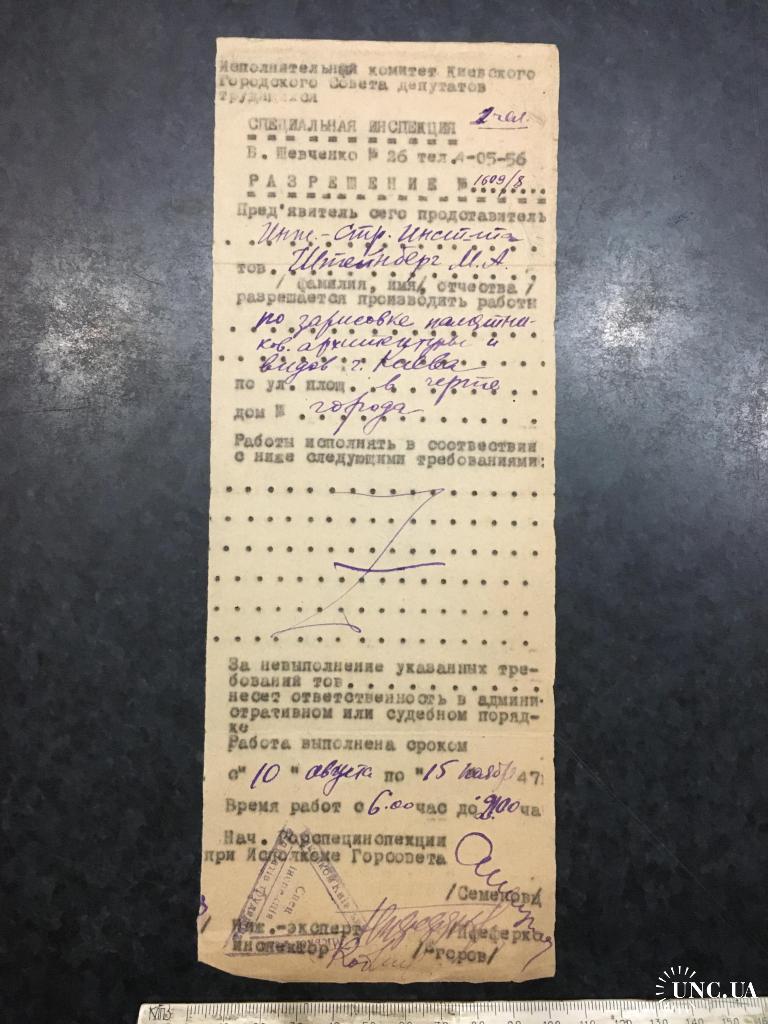 Исполнительный комитет Киевского
Городского Совета депутатов
трудящихся
СПЕЦИАЛЬНАЯ ИНСПЕКЦИЯ
Б. Шевченко № 26 тел.4-05-56
РАЗРЕШЕНИЕ № 1609/8
Пред'явитель сего продставитель
Инж.-Стр. Инст-та
тов. Штейнберг М.А.
/ фамилия, имя, отчества /
разрешается производить работы
по зарисовке памятни-
ков архитектуры и
видов г. Киева
по ул. площ. в черте
дом № города
Работы исполнять в соотвествии
с ниже следующими требованиями:
За невыполнение указанных тре-
бований тов.
несет ответственность в админи-
стративном или судебном поряд-
ке
Работа выполнена сроком
с" 10 " августа по "15 ноября 47
Время работ с 6.00 час до 21.00 ча
Нач. Горспецинспекции
при Исполкоме Горсовета
/Семенов/
Инж.-эксперт
инспектор
UNC.UA